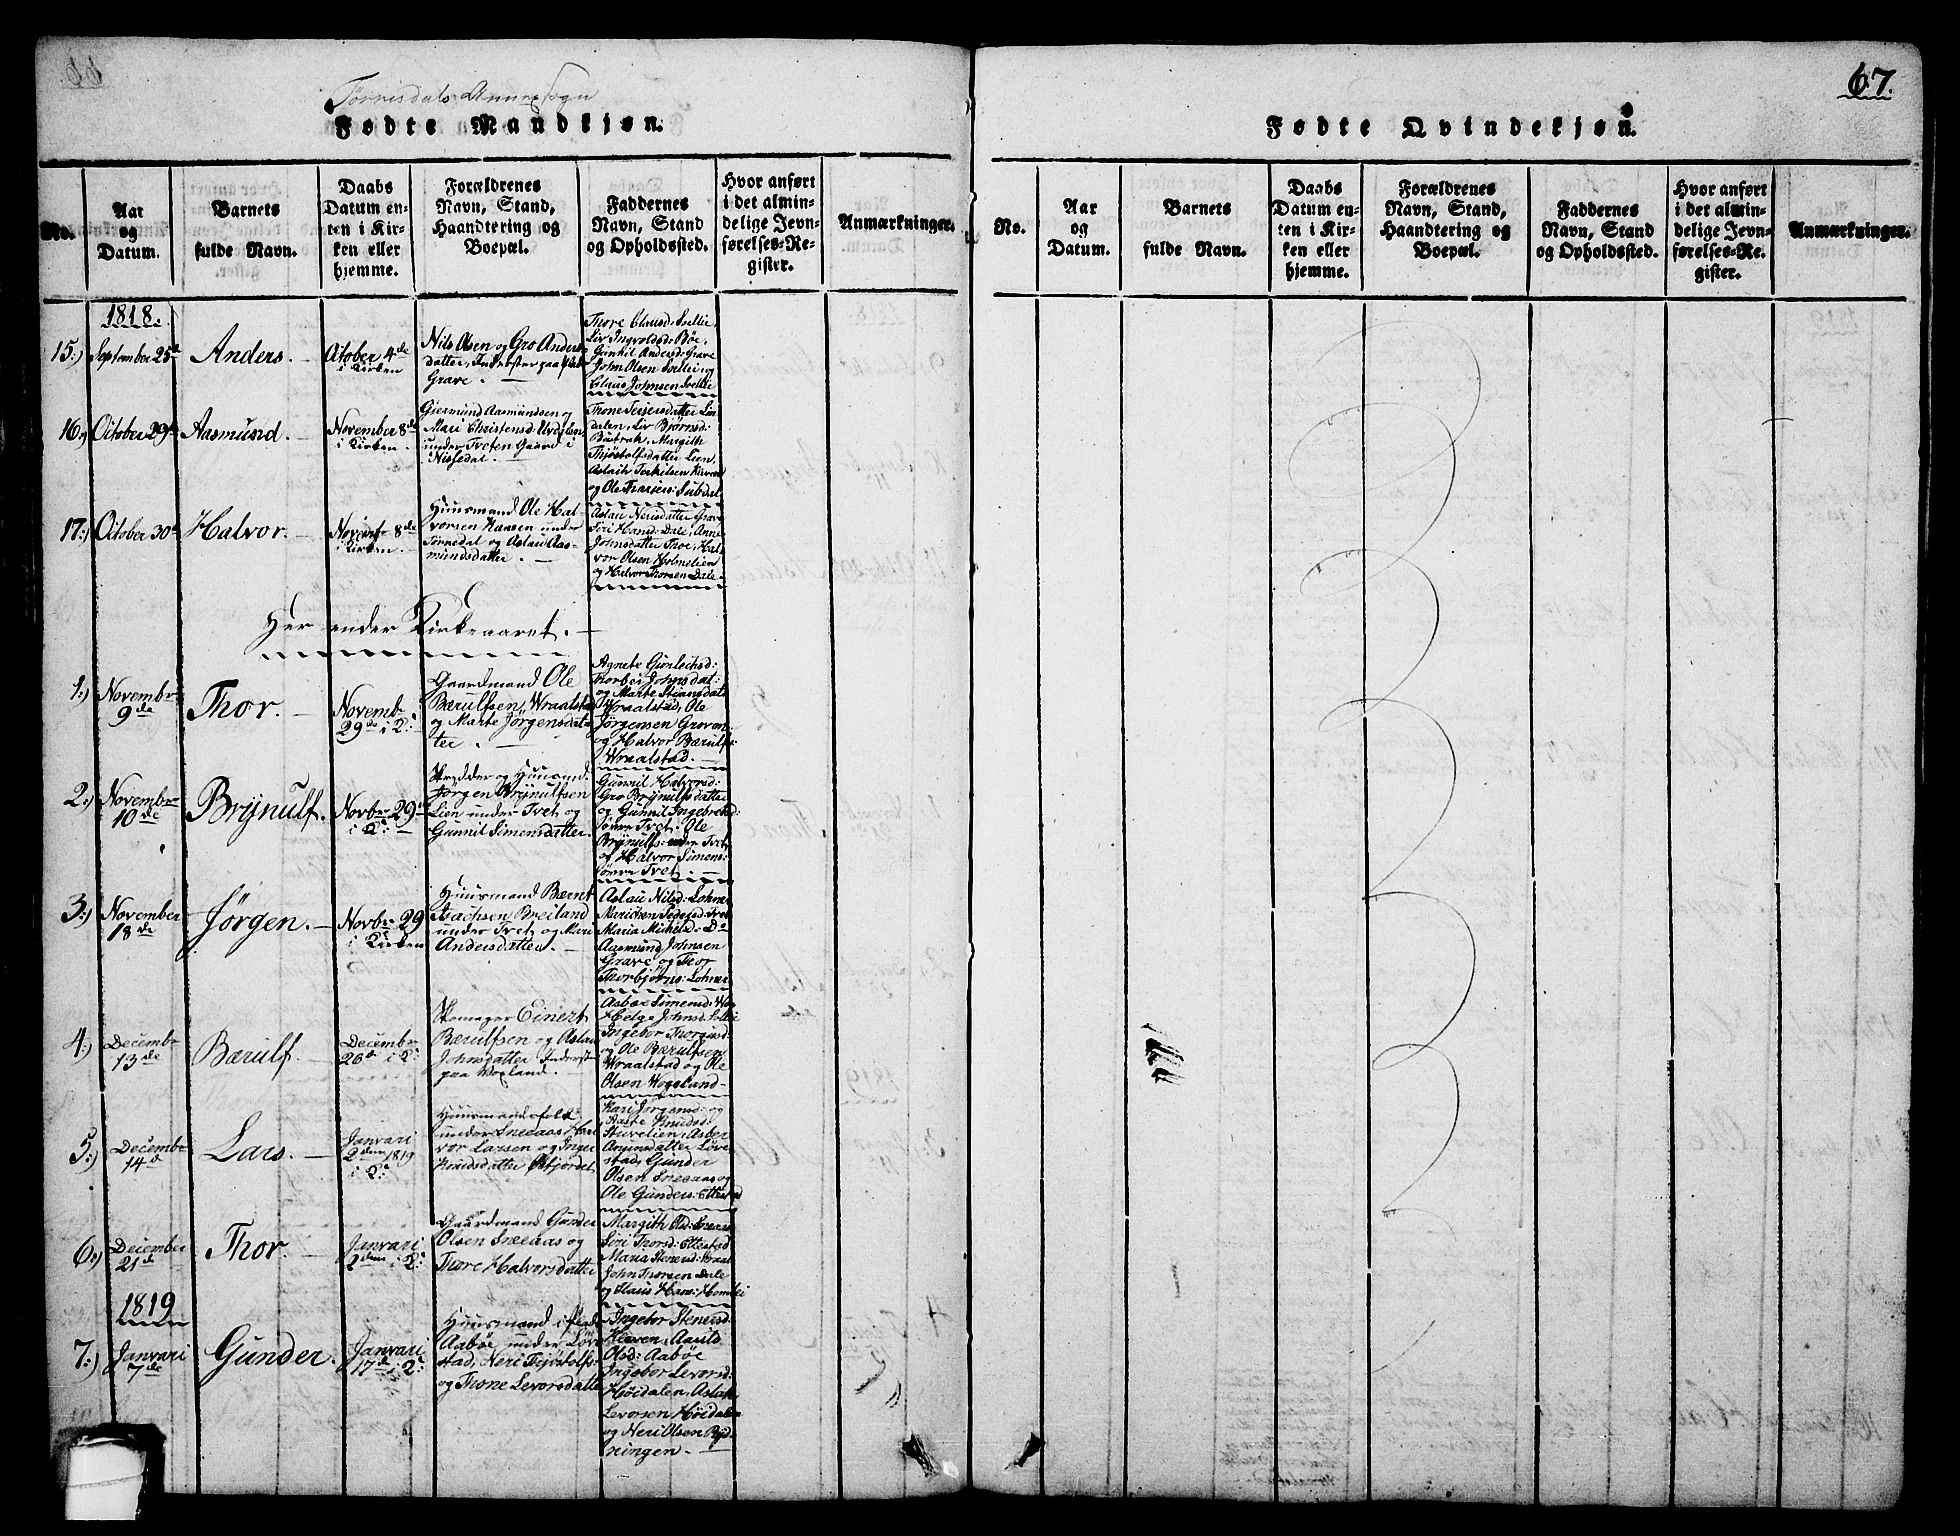 Tørrisdals Annexsogn
Fødte Mandkjøn.
No.
Aar
og
Datum.
Barnets
fulde Navn.
Daabs
Datum en-
ten i Kir-
ken eller
hjemme.
Forældrenes
Navn, Stand,
Haandtering og
Boepæl.
Faddernes
Navn, Stand
og Opholdssted.
Hvor anført
i det almin-
delige Jevn-
førelses-Re-
gister.
Anmærkninger.
1818.
15.)
September 25de
Anders.
October 4de
i Kirken
Nils Olsen og Gro Anders-
datter,
Grave.
Thore Clausd: Sællie,
Liv Ingvoldsd: Bøe,
Gunhil Andersd: Grave
John Olsen Sællie og
Claus Johnsen Sællie
16.)
October 29de
Aasmund.
November 8de
i Kirken.
Giermund Aasmundsen og
Mari Christensd:
under Tveten Gaard i
Nissedal.
Thone Terjersdatter Lin-
dalen, Liv Bjørnsd:
Margith
Thjøstolfsdatter Lien,
Aslach Terkilsen
og Ole
17.)
October 30te
Halvor.
Novembr 8de
i Kirken.
Huusmand Ole Hal-
vorsen Hansen under
Tørredal og Aslau Aas-
mundsdatter.
Aslau Nerisdatter Grave
Siri Hansd: Dale, Anne
Johnsdatter Thoe, Hal-
vor Olsen Holmelien
og Halvor Thorsen Dale.
Her ender Kirkeaaret.
1.)
Novembr
9de
Thor.
Novemb:
29de i K:
Gaardmand Ole
Bærulfsen, Wraalstad
og Marte Jørgensdat-
ter.
Agnete Gunlechsd:
Thorber Johnsdat:
og Marte Stiansdat:
Wraalstad, Ole
Jørgensen Groven
og Halvor Bærulfs:
Wraalstad.
2.)
Novembr
10de
Brÿnulf.
Novbr 29de
i K:
Skredder og Huusmd.
Jørgen Brÿnulfsen
Lien under Tvet og
Gunnil Simensdatter.
Gunnil Halvorsd:
Gro Brÿnulfsdatter
og Gunnil Ingebretsd:
Tvet. Ole
Brÿnulfs: Tvet
og Halvor Simens:
Tvet.
3.)
November
18de
Jørgen.
Novbr 29
i Kirken
Huusmand Bærnt
Isachsen Breiland
under Tvet og Mari
Andersdatter.
Aslau Nilsd: Lohner
Tvet
Maria Michelsd: Do
Aasmund Johnsen
Grave og Thor
Thorbjørns: Lohner
4.)
Decembr
13de
Bærulf.
Decembr
26de i K:
Skomager Einert
Bærulfsen og Aslau
Johnsdatter Inderst
paa Woxland.
Aasber Simensd:
Helge Johnsd: Sællie
Ingebor Thorgiusd:
og Ole Bærulfsen
Wraalstad og Ole
Olsen Wogsland
5.)
Decembr
14de
Lars.
Janvari
2den 1819
i K:
Huusmandsfolk
under Sneeaas Hal-
vor Larsen og Inger
Knudsdatter
Kari Jørgensd: og
Aaste Knudsd:
Sturelien, Asber
Anunsdatter Løve-
stad, Gunder
Olsen Sneeaas og
Ole Gunders: Ettestad
6.)
December
21de
Thor.
Janvari
2den i K:
Gaardmand Gunder
Olsen Sneeaas og
Thore Halvorsdatter
Margith Olsd: Sneaas
Siri Thorsd: Ettestad
Maria Stenersd:
John Thorsen Dale
og
1819
7.)
Janvari
7de
Gunder.
Janvari
17de i K:
Huusmand i Plads
Aabøe, under Løve-
stad, Neri Thjøstolfs:
og Thone Levorsdatter
Ingebor Stenersd:
Kleven, Aasild
Olsd: Aabøe
Ingebor Levorsd:
Høidalen, Aslak
Levorsen Høidalen
og Neri Olsen Rÿd-
ningen.
67.
Fødte Qvindekjøn.
No.
Aar
og
Datum.
Barnets
fulde Navn.
Daabs
Datum en-
ten i Kir-
ken eller
hjemme.
Forældrenes
Navn, Stand,
Haandtering og
Boepæl.
Faddernes
Navn, Stand
og Opholdssted.
Hvor anført
i det almin-
delige Jevn-
førelses-Re-
gister.
Anmærkninger.